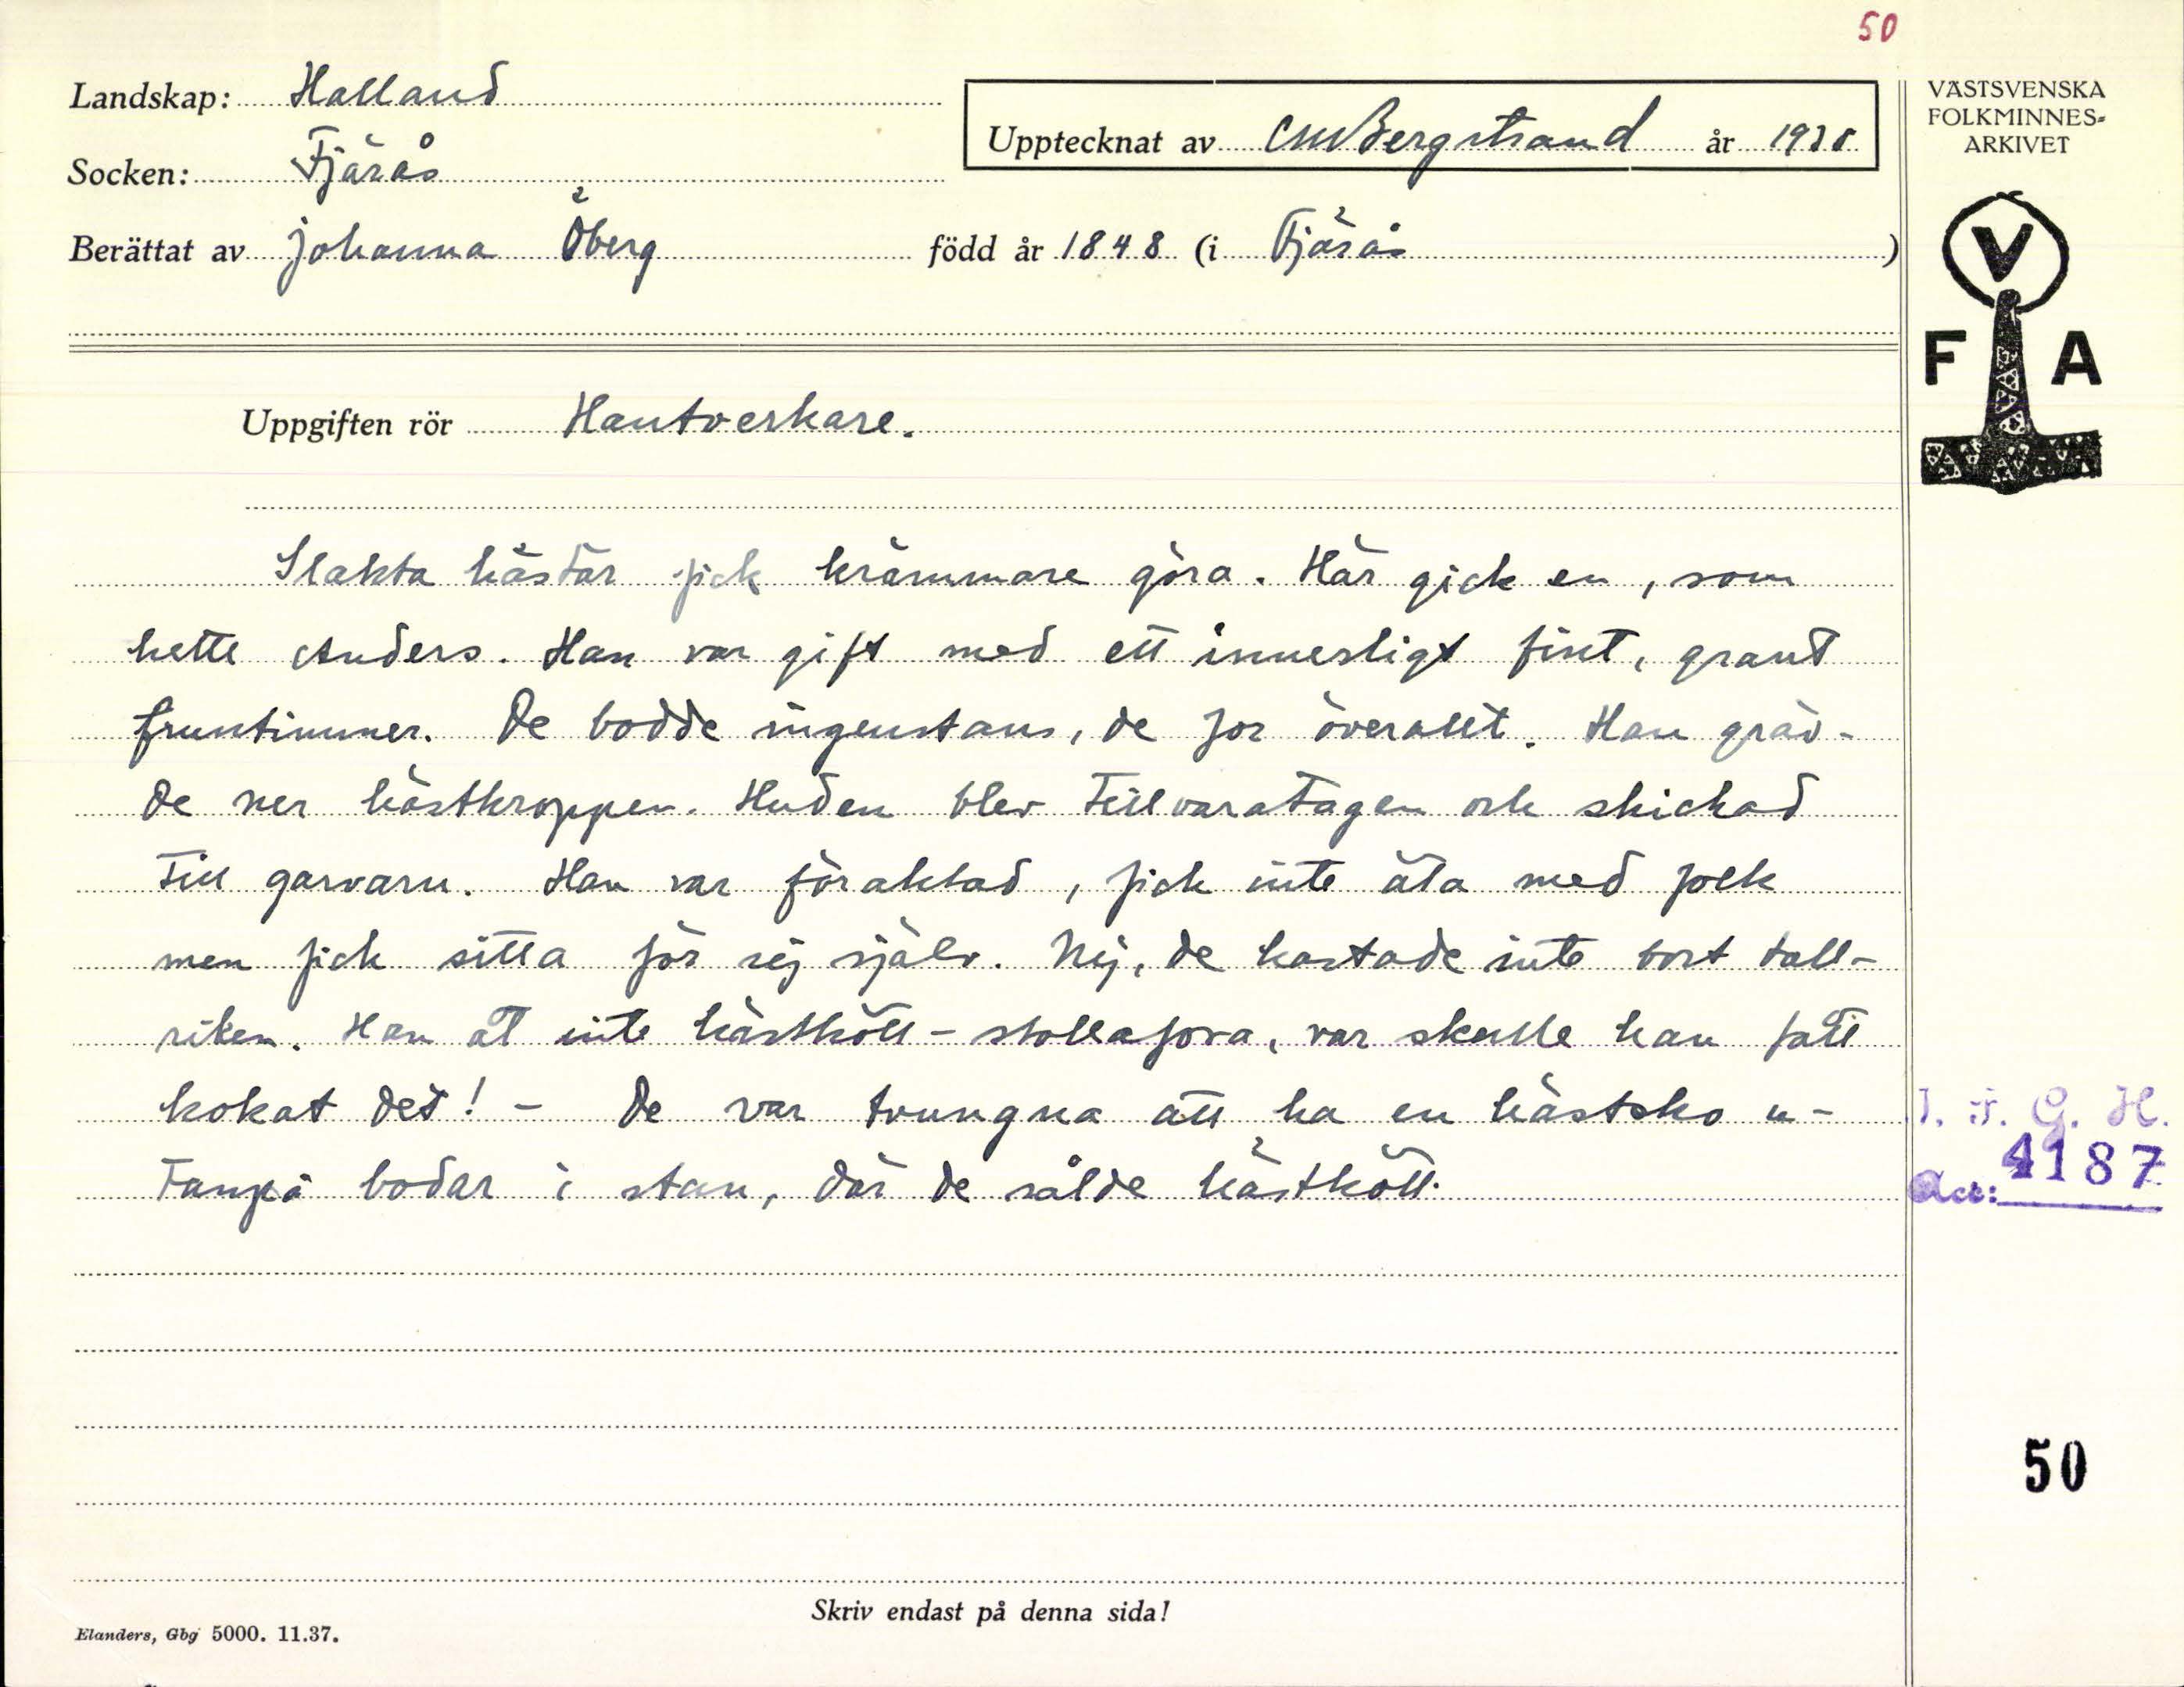 50
Landskap: Halland
Socken: Fjärås
Upptecknat av CMBergstrand år 1938
VÄSTSVENSKA
FOLKMINNES-
ARKIVET
Berättat av Johanna Öberg född år 1848 (i Fjärås )
V
F A
Uppgiften rör Hantverkare.
Slakta hästar fick krämmare göra. Här gick en, som
hette Anders. Han var gift med ett innerligt fint, grant
fruntimmer. De bodde ingenstans, de for överallt. Han gräv-
de ner hästkroppen. Huden blev tillvaratagen och skickad
till garvarn. Han var föraktad, fick inte äta med folk
men fick sitta för sej själv. Nej, de kastade inte bort tall-
riken. Han åt inte hästkött - stollafora, var skulle han fått
kokat det! - De var tvungna att ha en hästsko u-
tanpå bodar i stan, där de sålde hästkött.
I. F. G. H.
Acc: 4187
50
Skriv endast på denna sida!
Elanders, Gbg 5000. 11.37.